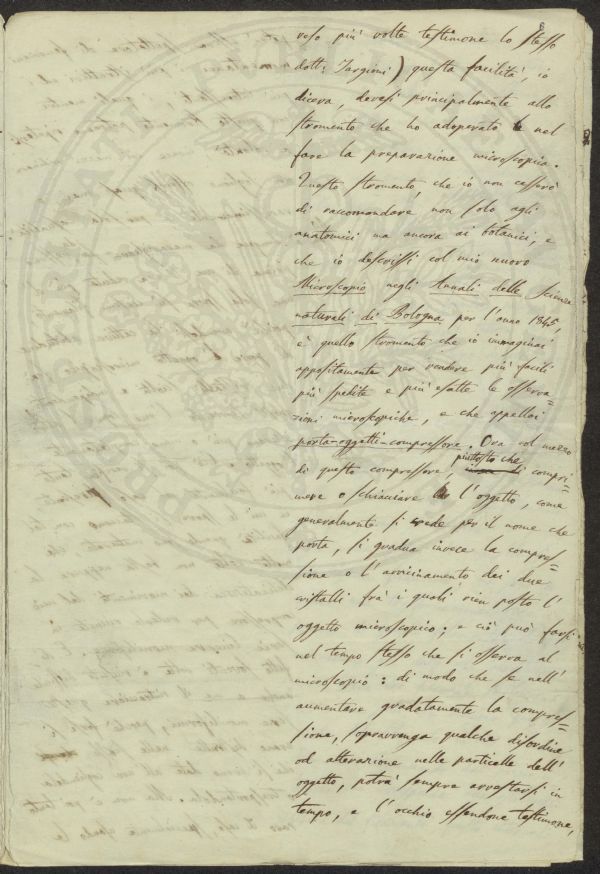 reso più volte testimone lo stesso
dott: Targioni) questa facilità, io
diceva, devesi principalmente allo
stromento che ho adoperato nel
fare la preparazione microscopica.
Questo stromento, che io non cesserò
di raccomandare non solo agli
anatomici ma ancora ai botanici, e
che io descrissi col mio nuovo
Microscopio negli Annali delle Scienze
naturali di Bologna per l'anno 1845,
è quello stromento che io immaginai
appositamente per rendere più facili
più spedite e più esatte le osserva=
zioni microscopiche, e che appellai
porta-oggetti-compressore. Ora col mezzo
di questo compressore, piuttosto che compri=
mere o schiacciare l'oggetto, come
generalmente si crede per il nome che
porta, si gradua invece la compres=
sione o l'avvicinamento dei due
cristalli frà i quali vien posto l'
oggetto microscopico; e ciò può farsi
nel tempo stesso che si osserva al
microscopio: di modo che se nell'
aumentare gradatamente la compres=
sione, sopravvenga qualche disordine
od alterazione nelle particelle dell'
oggetto, potrà sempre arrestarsi in
tempo, e l'occhio essendone testimone,